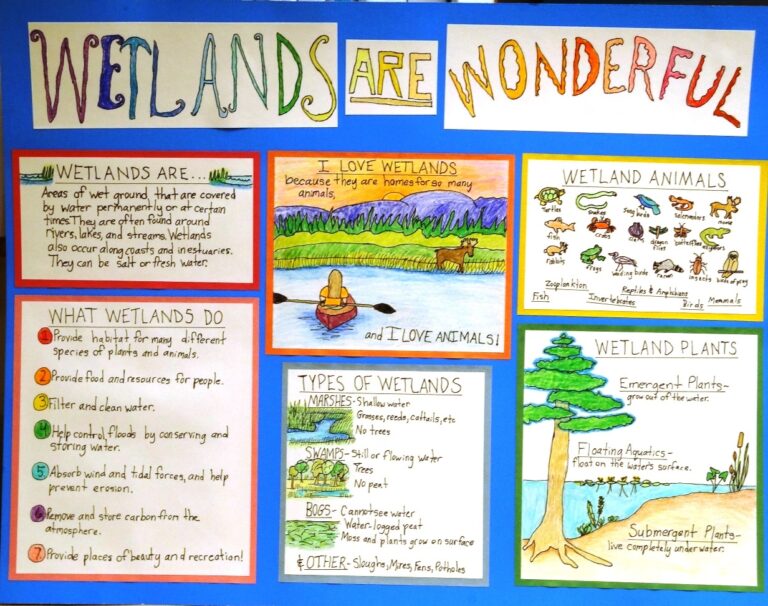 WETLANDS ARE WONDERFUL
WETLANDS ARE...
Areas of wet ground, that are covered
by water permanently or at certain
times. They are often found around
rivers, lakes, and streams. Wetlands
also occur along coasts and in estuaries.
They can be salt or fresh water.
I LOVE WETLANDS
because they are homes for so many
animals,
and I LOVE ANIMALS!
WETLAND ANIMALS
turtles snakes song birds salamanders moose
fish crabs crayfish dragon
flies butterflies
rabbits frogs wading birds racoon insects birds of prey
Zooplankton Reptiles & Amphibians
Fish Invertebrates Birds Mammals
WHAT WETLANDS DO
1 Provide habitat for many different
species of plants and animals.
2 Provide food and resources for people.
3 Filter and clean water.
4 Help control floods by conserving and
storing water.
5 Absorb wind and tidal forces, and help
prevent erosion.
6 Remove and store carbon from the
atmosphere.
7 Provide places of beauty and recreation!
TYPES OF WETLANDS
MARSHES- Shallow water
Grasses, reeds, cattails, etc
No trees
SWAMPS- Still or flowing water
Trees
No peat
BOGS- Cannot see water
Water-logged peat
Moss and plants grow on surface
& OTHER- Sloughs, Mires, Fens, Potholes
WETLAND PLANTS
Emergent Plants-
grow out of the water.
Floating Aquatics-
float on the water's surface.
Submergent Plants-
live completely underwater.